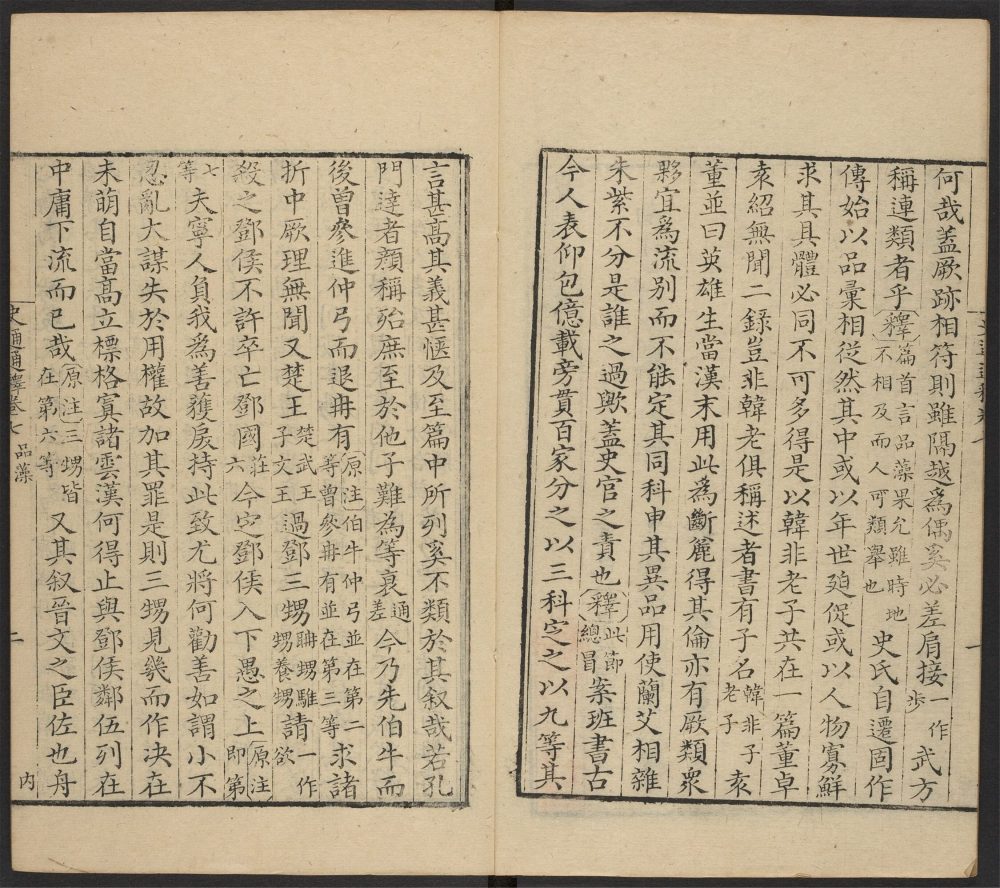 何哉蓋厥跡相符則雖隔越爲偶奚必差肩接一作步武方
稱連類者乎釋篇首言品藻果允雖時地不相及而人可類舉也史氏自遷固作
傳始以品彙相從然其中或以年世廹促或以人物寡鮮
求其具體必同不可多得是以韓非老子共在一篇董卓
袁紹無聞二録豈非韓老俱稱述者書有子名韓非子老子袁
董並曰英雄生當漢末用此爲斷麄得其倫亦有厥類衆
夥宜爲流别而不能定其同科申其異品用使蘭艾相雜
朱紫不分是誰之過歟蓋史官之責也釋此節總冒案班書古
今人表仰包億載旁貫百家分之以三科定之以九等其
言甚高其義甚愜及至篇中所列奚不類於其叙哉若孔
門達者顔稱殆庶至於他子難為等衰通差今乃先伯牛而
後曾參進仲弓而退冉有原注伯牛仲弓並在第二等曾參冉有並在第三等求諸
折中厥理無聞又楚王楚武王子文王過鄧三甥騅甥聃甥養甥請一作欲
殺之鄧侯不許卒亡鄧國莊六今定鄧侯入下愚之上原注即第
七等夫寧人負我爲善獲戾持此致尤將何勸善如謂小不
忍亂大謀失於用權故加其罪是則三甥見幾而作决在
未萌自當高立標格寘諸雲漢何得止與鄧侯鄰伍列在
中庸下流而已哉原注三甥皆在第六等又其叙晉文之臣佐也舟
史通通釋卷七 品藻
二
内